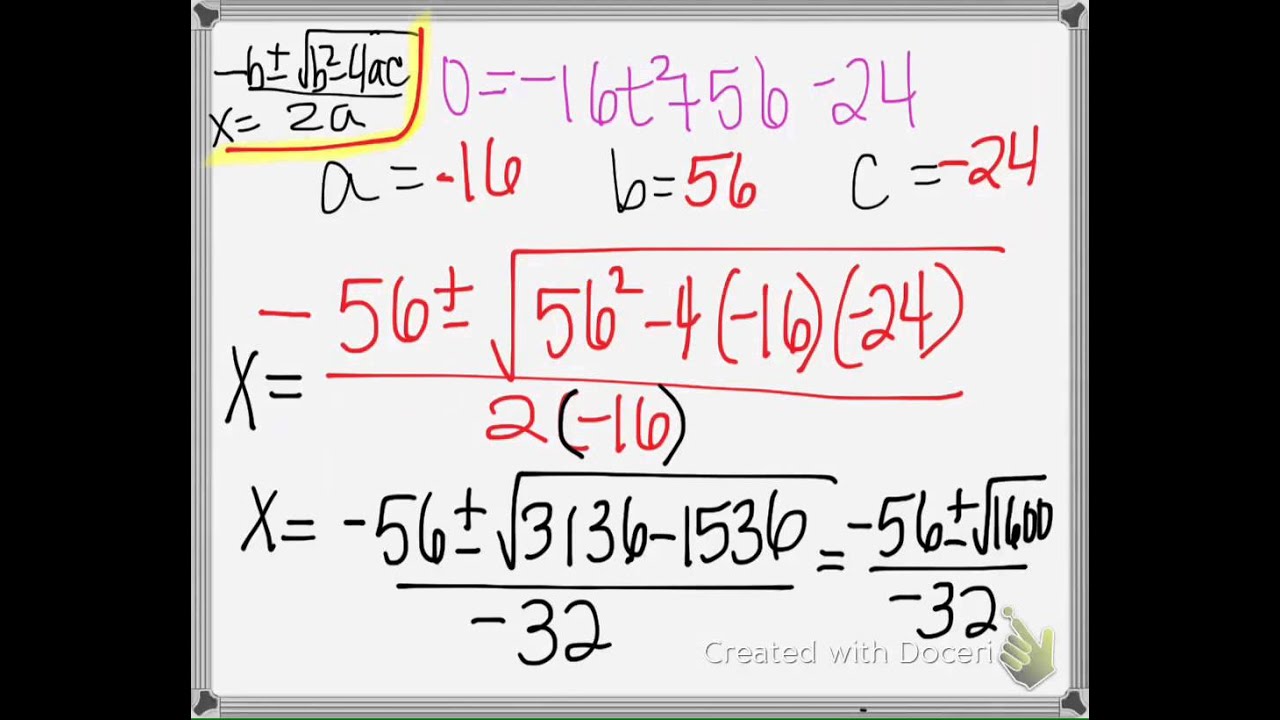 -b±√b²-4ac
x= 2a
0=-16t²+56-24
a=-16 b=56 c=-24
-56±√56²-4(-16)(-24)
x=
2(-16)
x= -56±√3136-1536 = -56±√1600
-32 -32
Created with Doceri